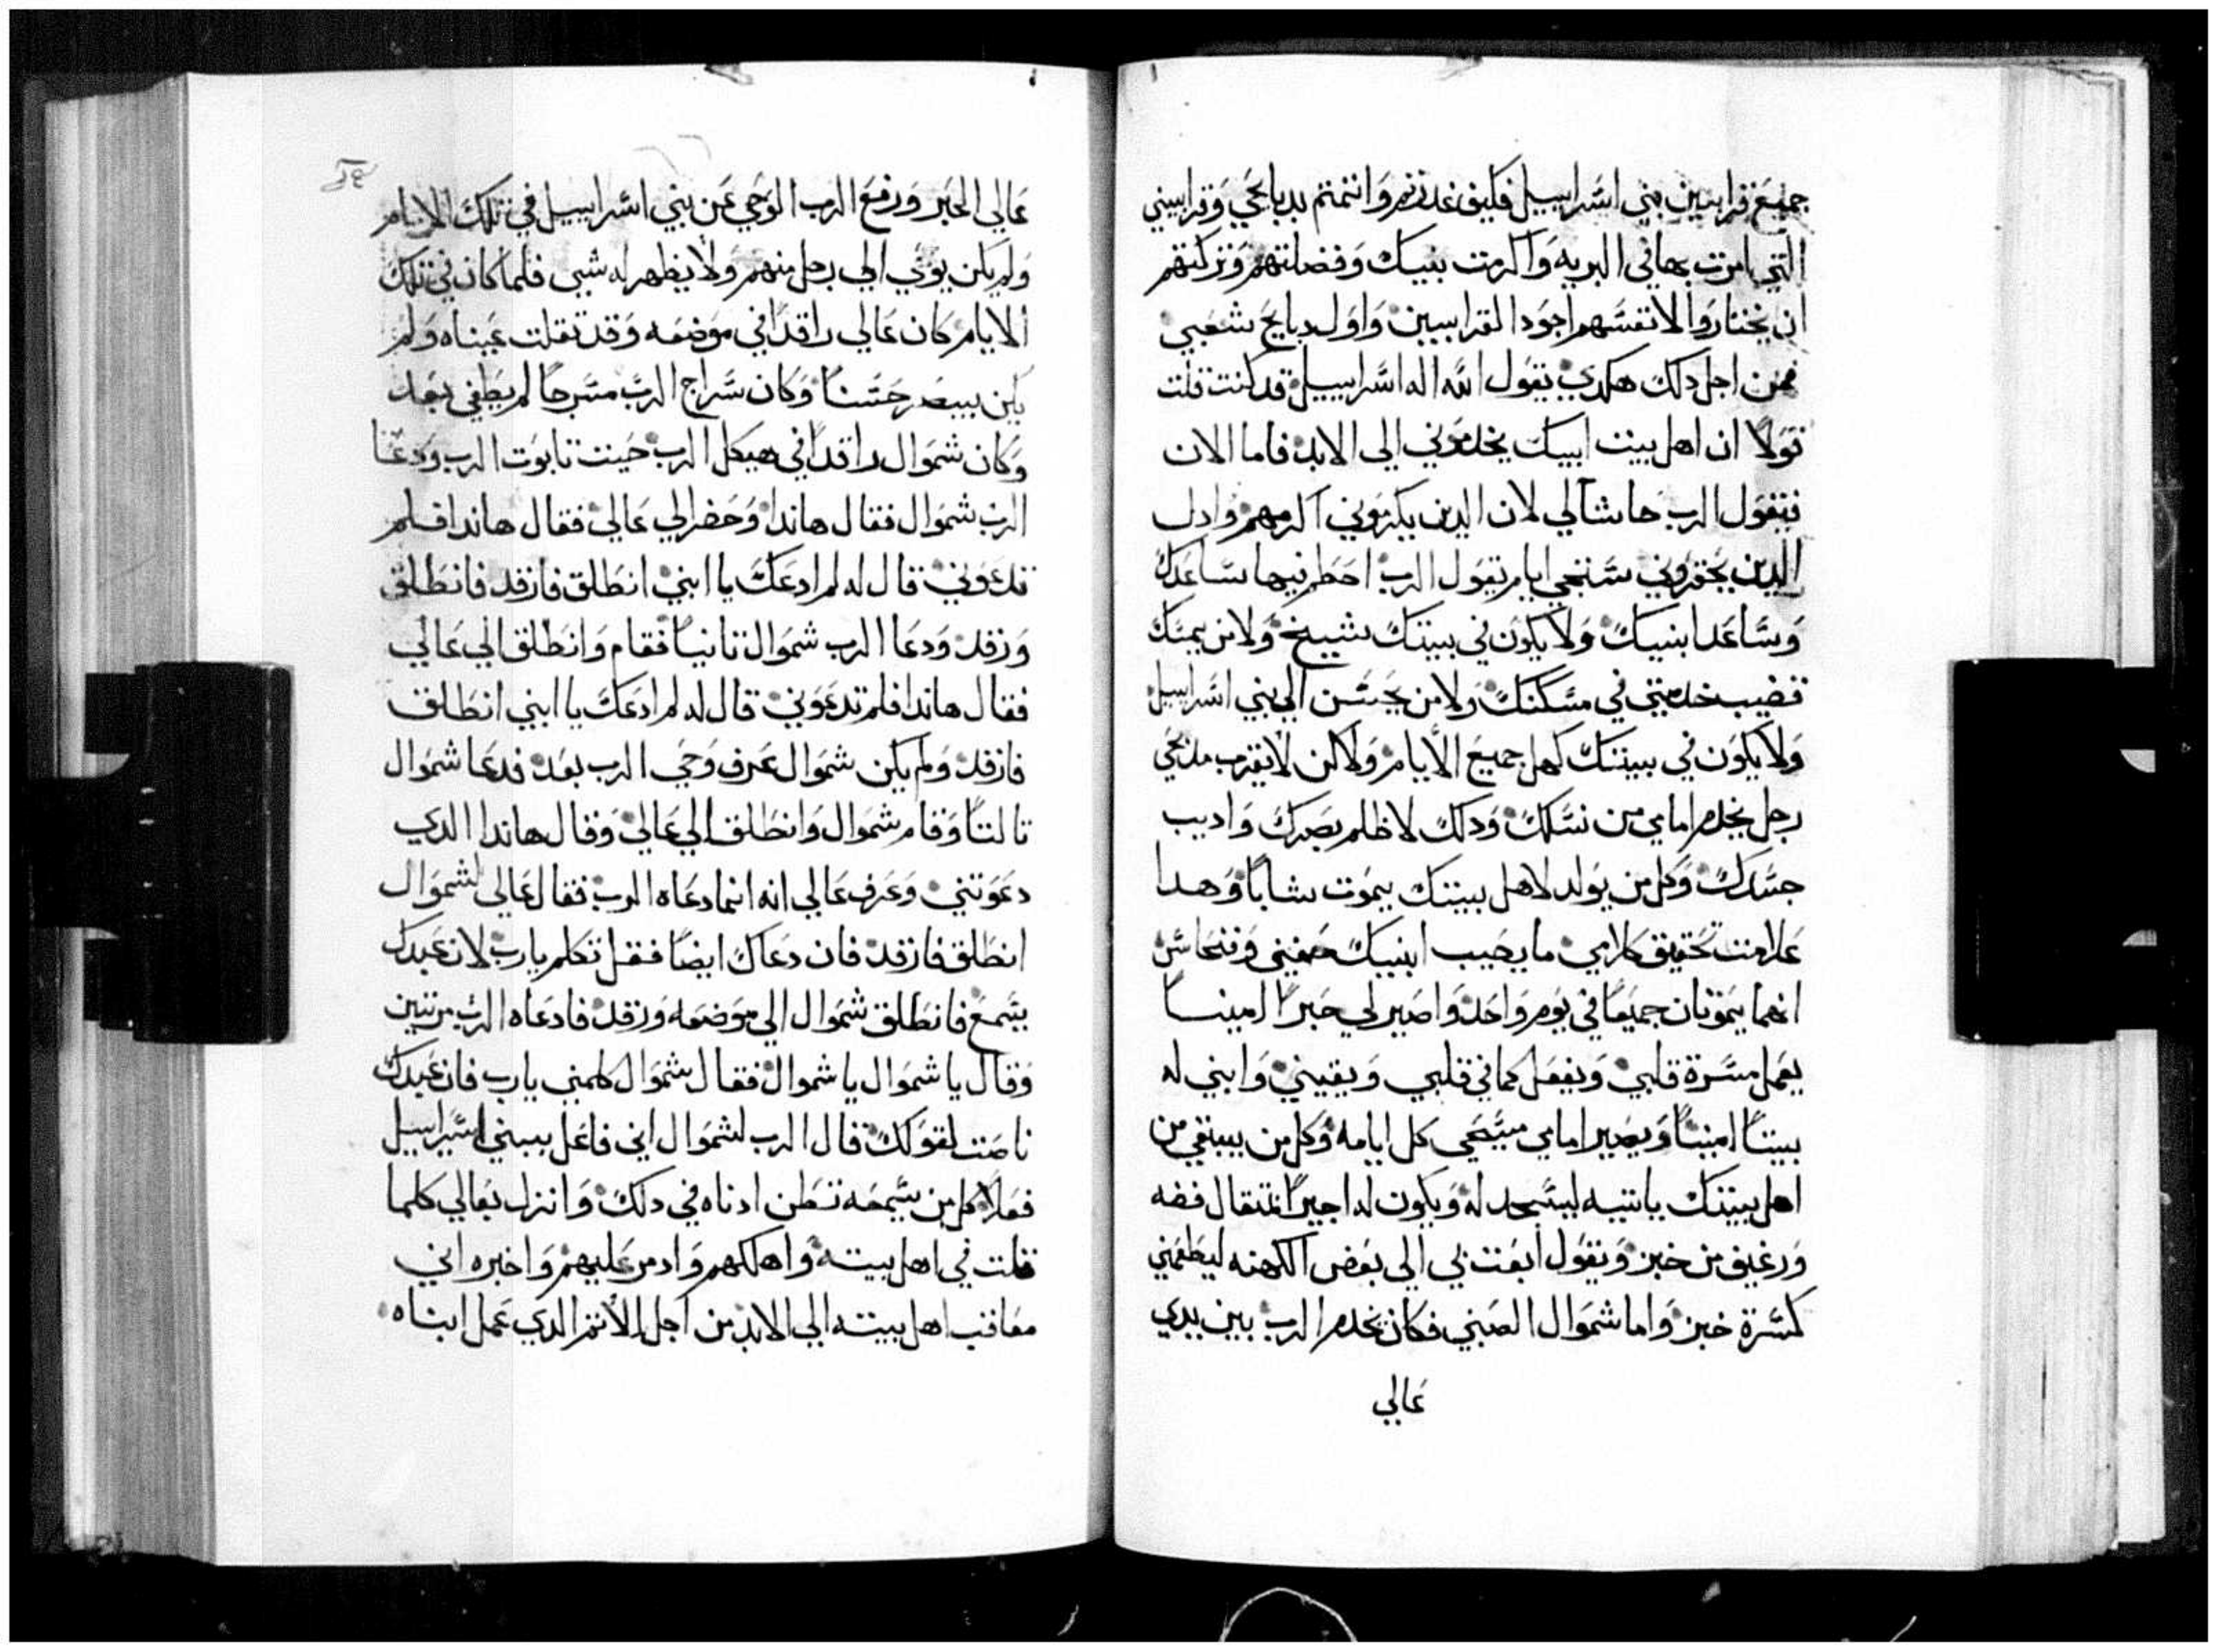 جميع قرابين بني اسراييل فكيف غدرتم وانتمتم بدبايحي وقرابيني
التي امرت بها في البريه واكرمت بنيك وفضلتهم وتركتهم
ان يختاروا لانفسهم اجود القرابين واول دبايح شعبي
فمن اجل دلك هكدي يقول الله اله اسراييل قد كنت قلت
قولاً ان اهل بيت ابيك يخدموني الي الابد فاما الان
فيقول الرب حاشا لي لان الدين يكرموني اكرمهم وادل
الدين يحقروني ستجي ايام يقول الرب احطم فيها ساعدك
وساعد ابنيك ولا يكون في بيتك شييخ ولا من يمسك
قضيب خدمتي في مسكنك ولا من يحسن الي بني اسراييل
ولا يكون في بيتك كهل جميع الايام ولاكن لا يقرب مدبحي
رجل يخدم امامي من نسلك ودلك لاظلم بصرك واديب
جسدك وكل من يولد لاهل بيتك يموت شاباً وهدا
علامت تحقيق كلامي ما يصيب ابنيك حفني وفنحاس
انهما يموتان جميعاً في يوم واحد واصير لي حبراً امينا
يعمل مسرة قلبي ويفعل كما في قلبي ويقيني وابني له
بيتاً امينا ويصير امامي مسحي كل ايامه وكل من يبقي من
اهل بيتك ياتيه ليسجد له ويكون له اجيراً بمتقال فضه
ورغيف من خبز ويقول ابعت بي الي بعض الكهنه ليطعمني
كسرة خبز واما شموال الصبي فكان يخدم الرب بين يدي
عالي
عالي الحبر ورفع الرب الوحي عن بني اسراييل في تلك الايام
ولم يكن يوحي الي رجل منهم ولا يظهر له شي فلما كان في تلك
الايام كان عالي راقداً في موضعه وقد تقلت عيناه ولم
يكن يبصر حسناً وكان سراج الرب مسرجا لم يطفي بعد
وكان شموال راقداً في هيكل الرب حيت تابوت الرب ودعا
الرب شموال فقال هاندا وحضر الي عالي فقال هاندا فلم
تدعوني قال له لم ادعك يا ابني انطلق فارقد فانطلق
ورقد ودعا الرب شموال تانياً فقام وانطلق الي عالي
فقال هاندا فلم تدعوني قال له لم ادعك يا ابني انطلق
فارقد ولم يكن شموال عرف وحي الرب بعد فدعا شموال
تالتاً وقام شموال وانطلق الي عالي وقال هاندا الدي
دعوتني وعرف عالي انه انما دعاه الرب فقال عالي لشموال
انطلق فارقد فان دعاك ايضاً فقل تكلم يا رب لان عبدك
يسمع فانطلق شموال الي موضعه ورقد فادعاه الرب مرتين
وقال يا شموال يا شموال فقال شموال كلمني يا رب فان عبدك
ناصت لقولك قال الرب لشموال اني فاعل ببني اسراييل
فعلاً كل من يسمعه تطن ادناه في دلك وانزل بعالي كلما
قلت في اهل بيته واهلكهم وادمر عليهم واخبره اني
معاقب اهل بيته الي الابد من اجل الاتم الدي عمل ابناه